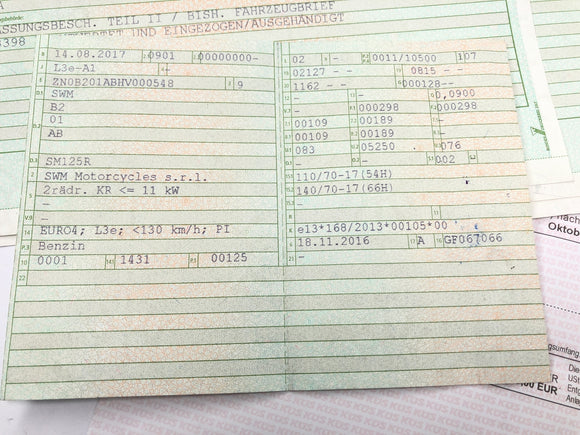 ASSUNGSBESCH. TEIL II / BISH. FAHRZEUGBRIEF
UND EINGEZOGEN/AUSGEHÄNDIGT
398
14.08.2017 0901 00000000-
L3e-A1 -
ZN0B201ABHV000548 9
SWM
B2
01
AB
SM125R
SWM Motorcycles s.r.l.
2rädr. KR <= 11 kW
-
-
EURO4; L3e; <130 km/h; PI
Benzin
0001 1431 00125
02 - 0011/10500 107
02127 - - 0815 - -
1162 - - 000128--
- - 0,0900
- 000298 000298
00109 00189 -
00109 00189 -
083 05250 076
- - 002
110/70-17(54H)
140/70-17(66H)
-
-
e13*168/2013*00105*00
18.11.2016 A GF067066
-
nach
Oktob
gsumfang
Die
USt
Entg
00 EUR
Anle